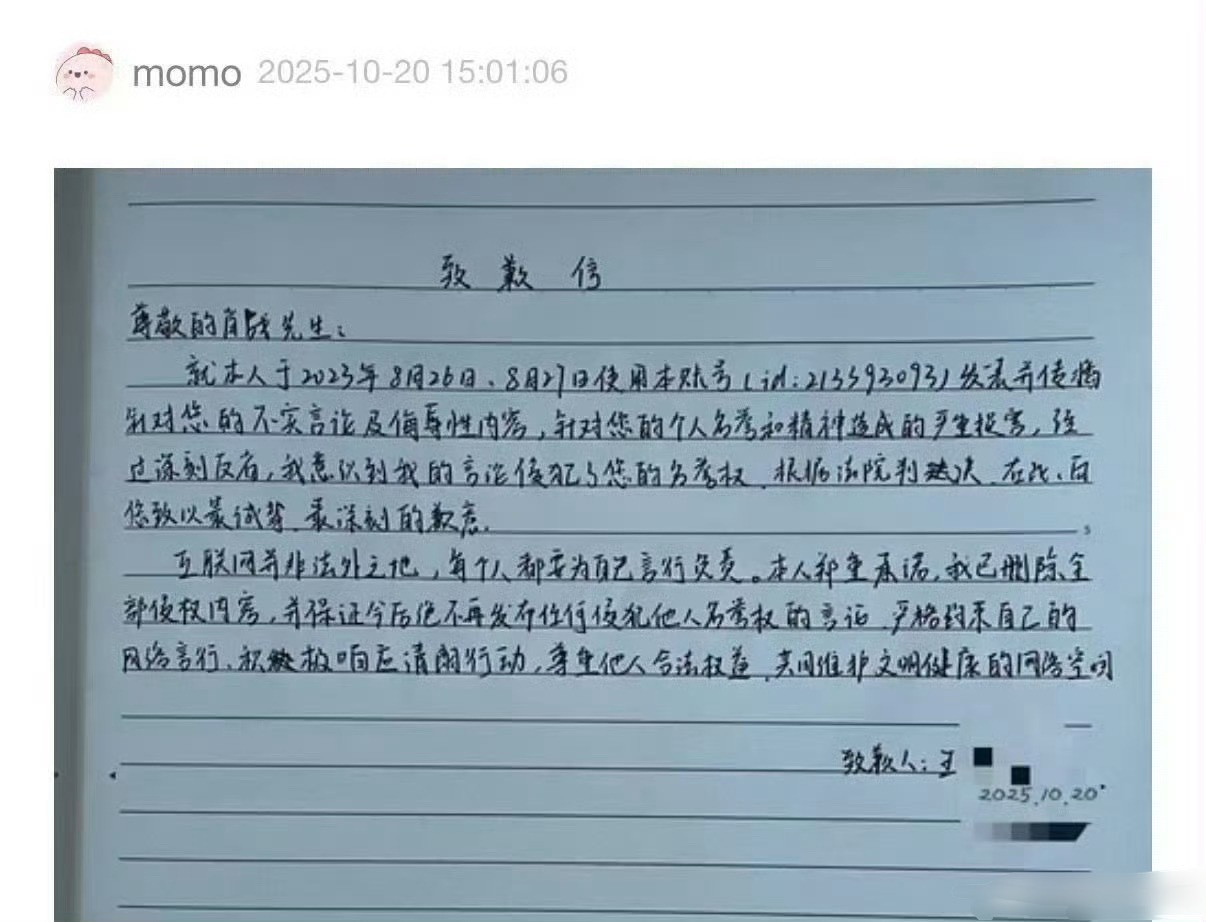 momo 2025-10-20 15:01:06
致歉信
尊敬的肖战先生：
就本人于2023年8月26日、8月27日使用本账号(id:213593093)发表并传播
针对您的不实言论及侮辱性内容，针对您的个人名誉和精神造成的严重损害，经
过深刻反省，我意识到我的言论侵犯了您的名誉权，根据法院判决，在此，向
您致以最诚挚、最深刻的歉意。
互联网并非法外之地，每个人都要为自己言行负责。本人郑重承诺，我已删除全
部侵权内容，并保证今后绝不再发布任何侵犯他人名誉权的言论，严格约束自己的
网络言行、积极响应清朗行动，尊重他人合法权益，共同维护文明健康的网络空间
致歉人：王
2025.10.20.